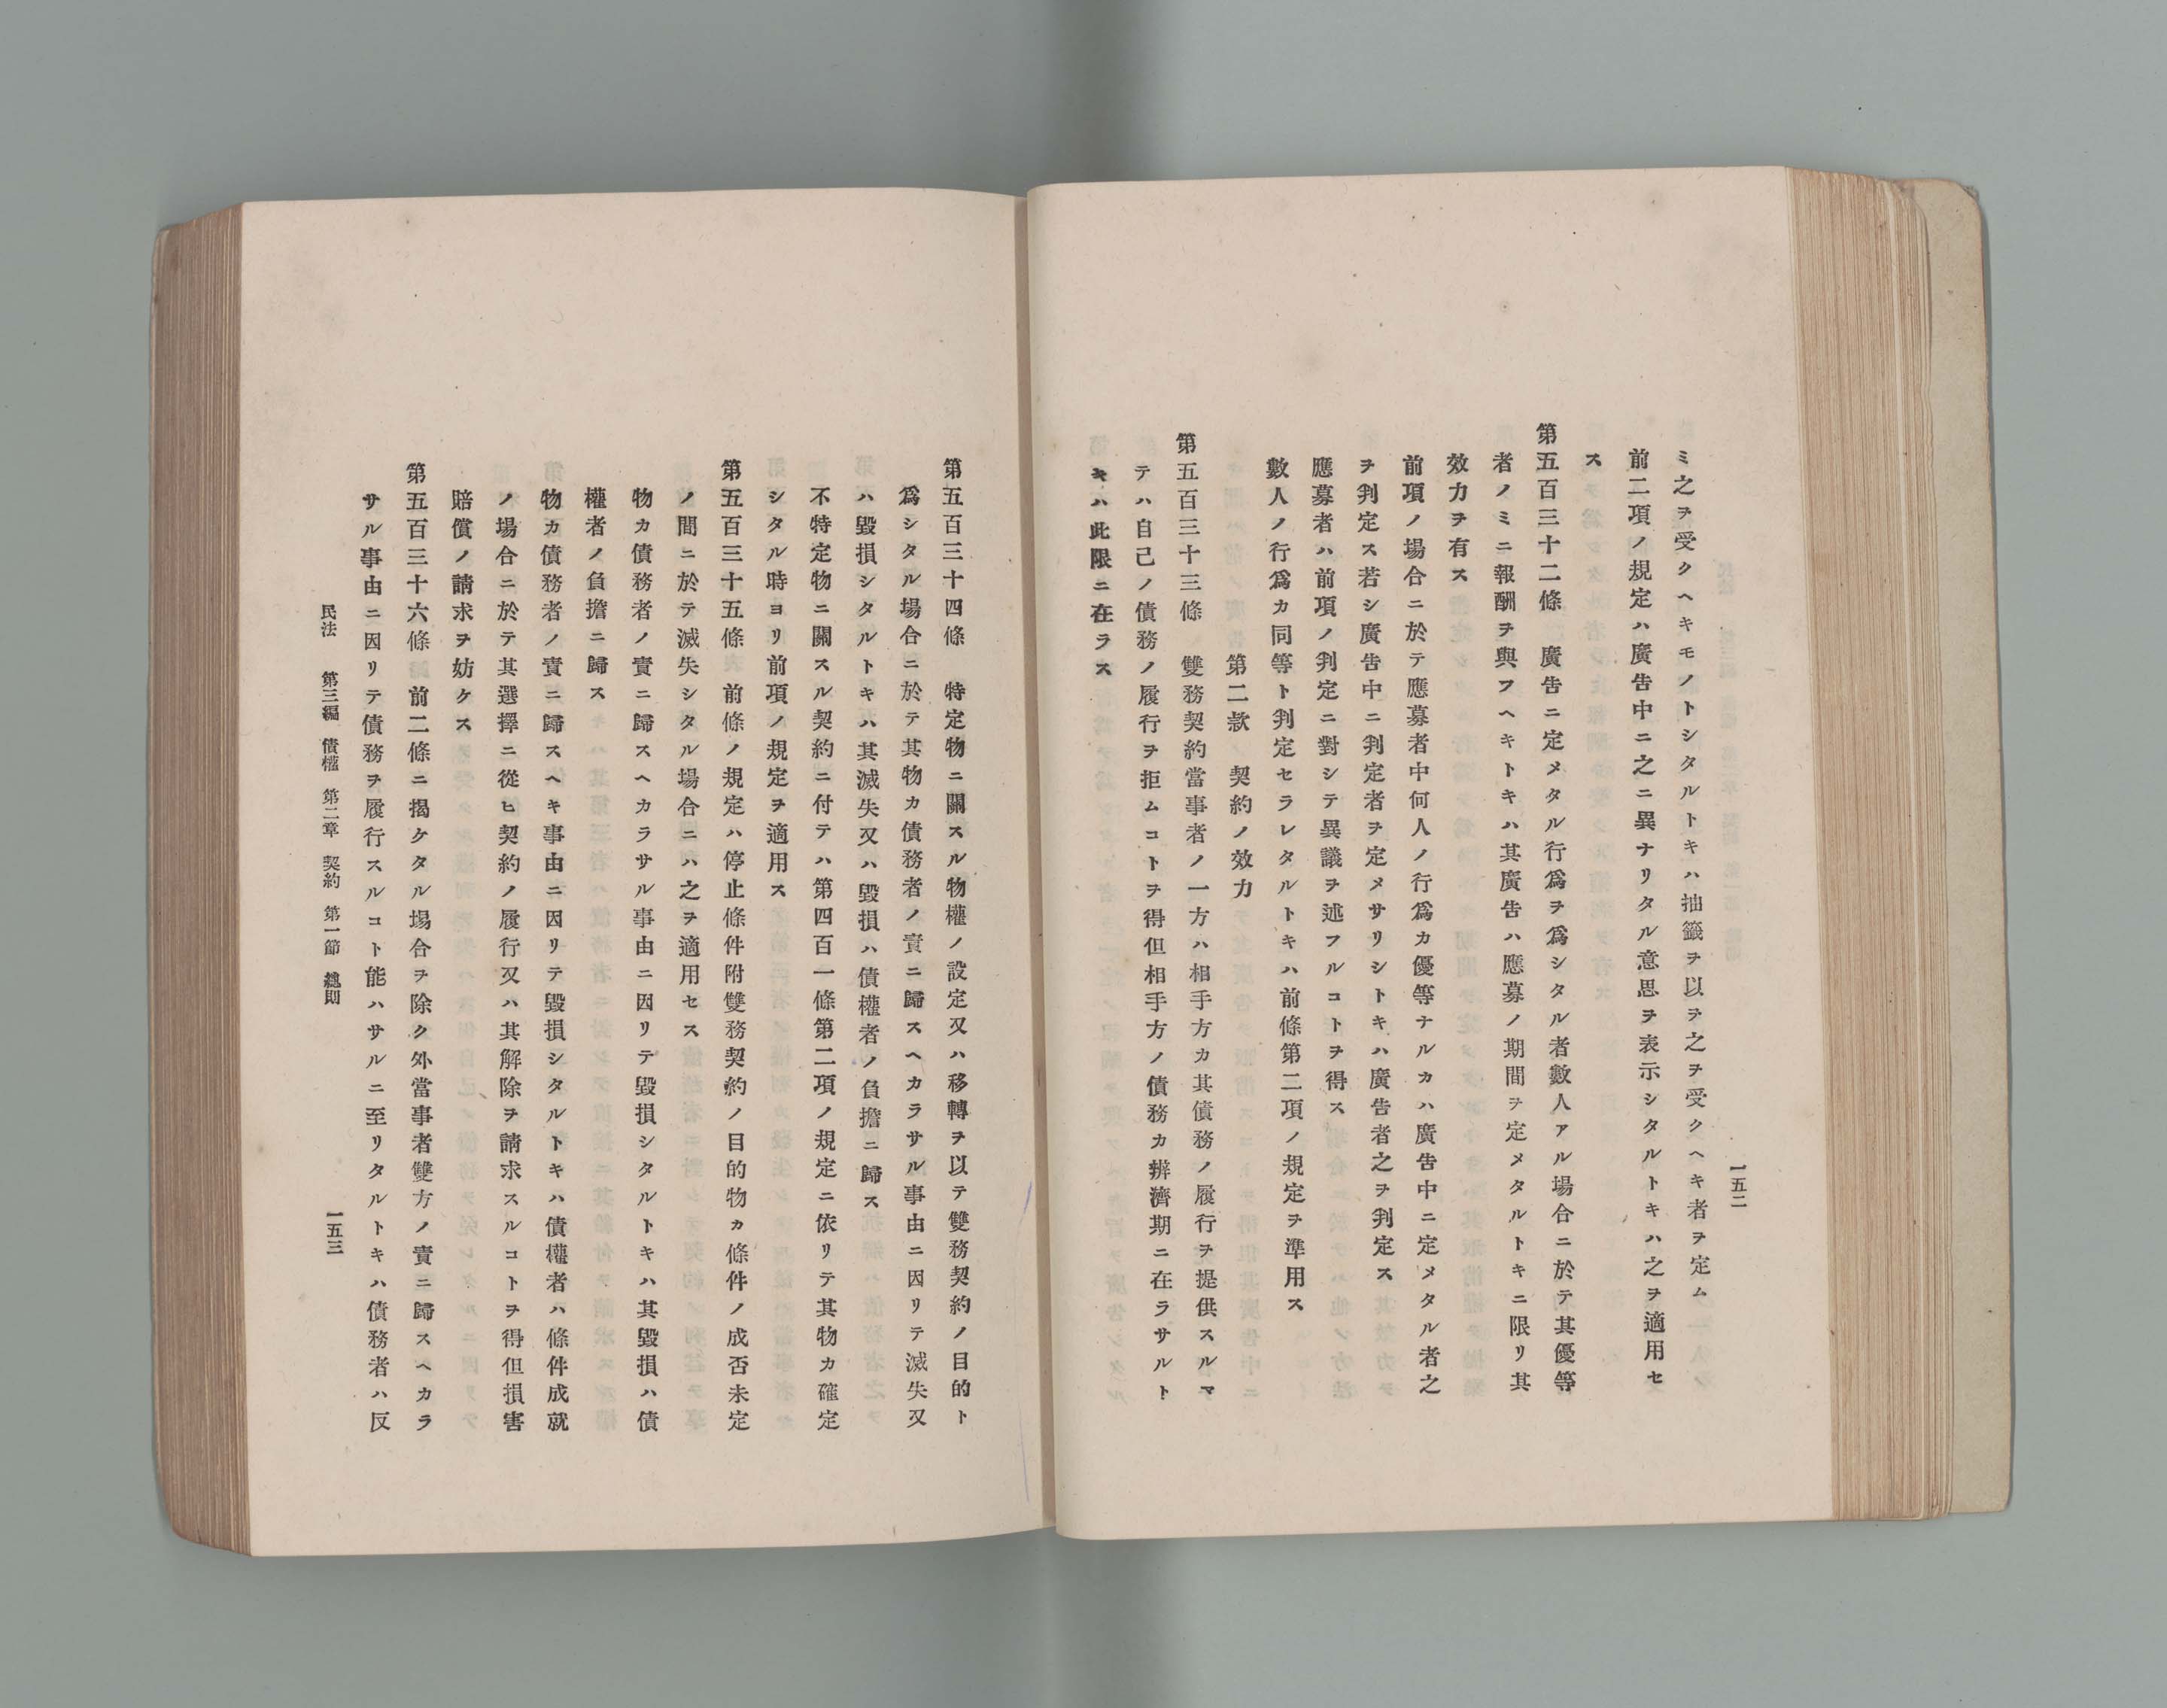 一五二
ミ之ヲ受クヘキモノトシタルトキハ抽籤ヲ以テ之ヲ受クヘキ者ヲ定ム
前二項ノ規定ハ廣告中ニ之ニ異ナリタル意思ヲ表示シタルトキハ之ヲ適用セ
ス
第五百三十二條　廣告ニ定メタル行爲ヲ爲シタル者數人アル場合ニ於テ其優等
者ノミニ報酬ヲ與フヘキトキハ其廣告ハ應募ノ期間ヲ定メタルトキニ限リ其
效力ヲ有ス
前項ノ場合ニ於テ應募者中何人ノ行爲カ優等ナルカハ廣告中ニ定メタル者之
ヲ判定ス若シ廣告中ニ判定者ヲ定メサリシトキハ廣告者之ヲ判定ス
應募者ハ前項ノ判定ニ對シテ異議ヲ述フルコトヲ得ス
數人ノ行爲カ同等ト判定セラレタルトキハ前條第二項ノ規定ヲ準用ス
第二款　契約ノ效力
第五百三十三條　雙務契約當事者ノ一方ハ相手方カ其債務ノ履行ヲ提供スルマ
テハ自己ノ債務ノ履行ヲ拒ムコトヲ得但相手方ノ債務カ辨濟期ニ在ラサルト
キハ此限ニ在ラス
第五百三十四條　特定物ニ關スル物權ノ設定又ハ移轉ヲ以テ雙務契約ノ目的ト
爲シタル場合ニ於テ其物カ債務者ノ責ニ歸スヘカラサル事由ニ因リテ滅失又
ハ毀損シタルトキハ其滅失又ハ毀損ハ債權者ノ負擔ニ歸ス
不特定物ニ關スル契約ニ付テハ第四百一條第二項ノ規定ニ依リテ其物カ確定
シタル時ヨリ前項ノ規定ヲ適用ス
第五百三十五條　前條ノ規定ハ停止條件附雙務契約ノ目的物カ條件ノ成否未定
ノ間ニ於テ滅失シタル場合ニハ之ヲ適用セス
物カ債務者ノ責ニ歸スヘカラサル事由ニ因リテ毀損シタルトキハ其毀損ハ債
權者ノ負擔ニ歸ス
物カ債務者ノ責ニ歸スヘキ事由ニ因リテ毀損シタルトキハ債權者ハ條件成就
ノ場合ニ於テ其選擇ニ從ヒ契約ノ履行又ハ其解除ヲ請求スルコトヲ得但損害
賠償ノ請求ヲ妨ケス
第五百三十六條　前二條ニ揭ケタル場合ヲ除ク外當事者雙方ノ責ニ歸スヘカラ
サル事由ニ因リテ債務ヲ履行スルコト能ハサルニ至リタルトキハ債務者ハ反
民法　第三編　債權　第二章　契約　第一節　總則　一五三